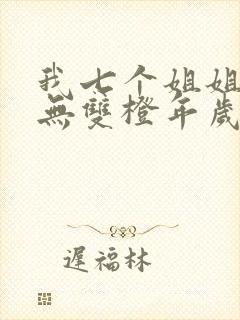 我七个姐姐
無雙橙年歲
遲福林